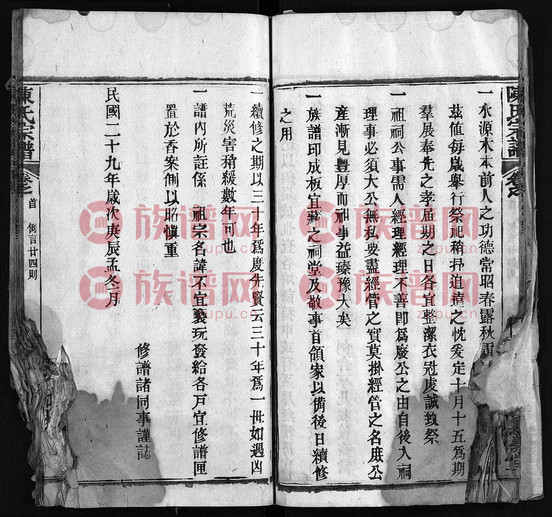 陳氏宗譜
一水源木本前人之功德常昭春露秋霜
茲值每歲舉行祭祀稍昇追遠之忱爰定十月十五為期
羣展奉先之孝屆期之日各宜整潔衣冠虔誠致祭
一祖祠公事需人經理經理不善即為廢公之由自後入祠
理事必須大公無私要盡經管之實莫掛經管之名庶公
產漸見豐厚而祖事益臻豫大矣
一族譜印成板宜藏之祠堂及敬事首領家以備後日續修
之用
一續修之期以三十年為度先賢云三十年為一世如遇凶
荒災害稍緩數年可也
一譜內所註係 祖宗名諱不宜褻玩發給各戸宜修譜匣
置於香案側以昭慎重
修譜諸同事謹誌
民國二十九年歲次庚辰孟冬月
陳氏宗譜 卷之首 例言廿四則
族谱网
zupu.cn